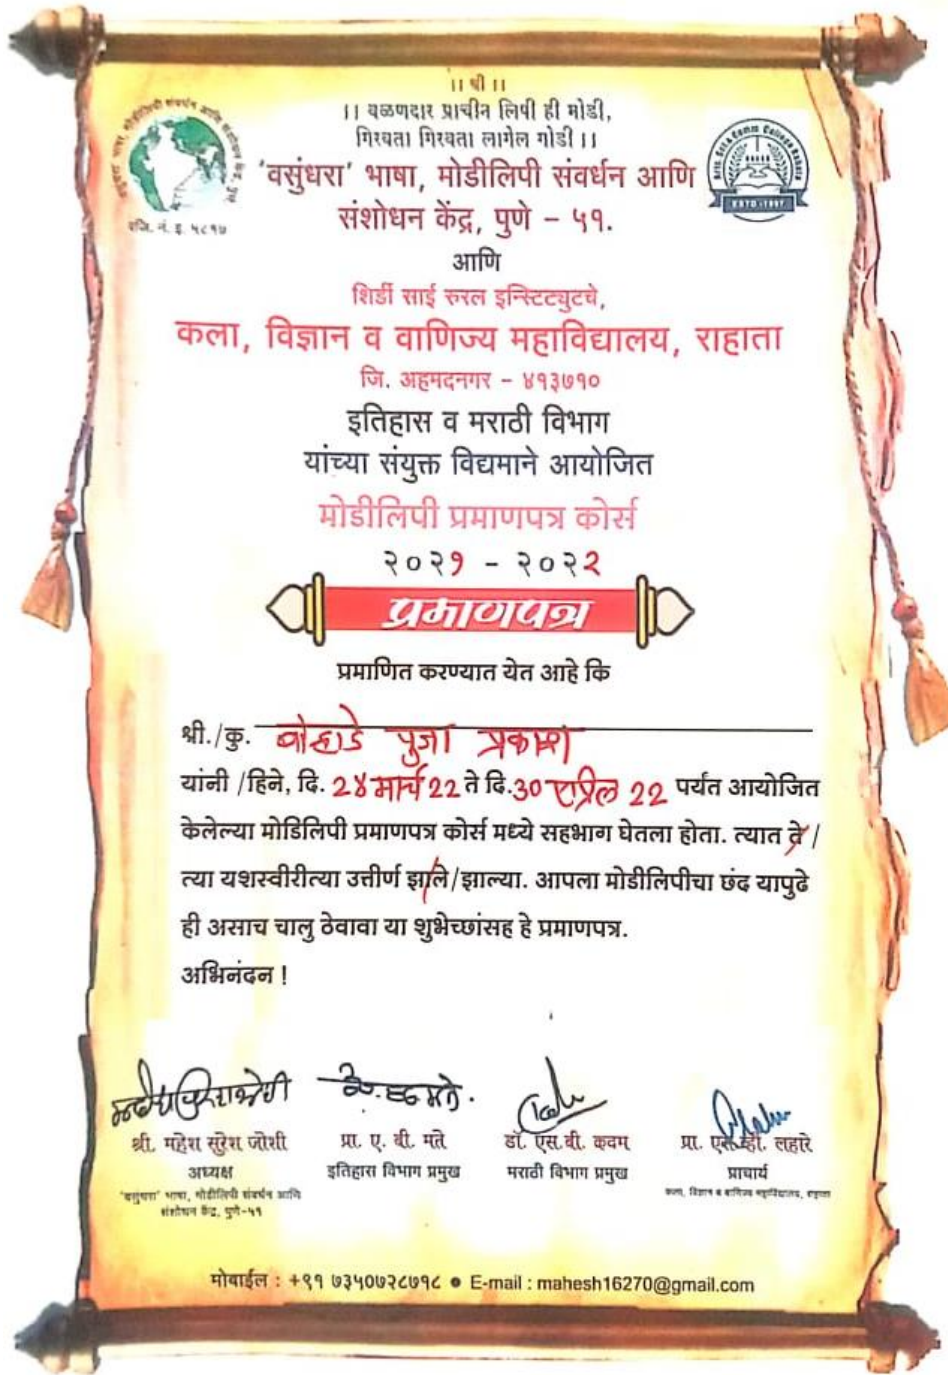 ।। श्री ।।
।। वळणदार प्राचीन लिपी ही मोडी,
गिरवता गिरवता लागेल गोडी ।।
'वसुंधरा' भाषा, मोडीलिपी संवर्धन आणि
संशोधन केंद्र, पुणे - ५१.
रजि. नं. इ. ५८१७
Arts, Sci & Comm College Rahata
ESTD-1997
आणि
शिर्डी साई रुरल इन्स्टिट्युटचे,
कला, विज्ञान व वाणिज्य महाविद्यालय, राहाता
जि. अहमदनगर - ४१३७१०
इतिहास व मराठी विभाग
यांच्या संयुक्त विद्यमाने आयोजित
मोडीलिपी प्रमाणपत्र कोर्स
२०२१ - २०२२
प्रमाणपत्र
प्रमाणित करण्यात येत आहे कि
श्री./कु. बोऱ्हाडे पुजा प्रकाश
यांनी /हिने, दि. 24 मार्च 22 ते दि. 30 एप्रिल 22 पर्यंत आयोजित
केलेल्या मोडिलिपी प्रमाणपत्र कोर्स मध्ये सहभाग घेतला होता. त्यात ते /
त्या यशस्वीरीत्या उत्तीर्ण झाले/झाल्या. आपला मोडीलिपीचा छंद यापुढे
ही असाच चालु ठेवावा या शुभेच्छांसह हे प्रमाणपत्र.
अभिनंदन !
श्री. महेश सुरेश जोशी
अध्यक्ष
'वसुंधरा' भाषा, मोडीलिपी संवर्धन आणि
संशोधन केंद्र, पुणे-५१
प्रा. ए. बी. मते
इतिहास विभाग प्रमुख
डॉ. एस.बी. कदम
मराठी विभाग प्रमुख
प्रा. एस.व्ही. लहारे
प्राचार्य
कला, विज्ञान व वाणिज्य महाविद्यालय, राहाता
मोबाईल : +९१ ७३५०७२८७१८ ● E-mail : mahesh16270@gmail.com